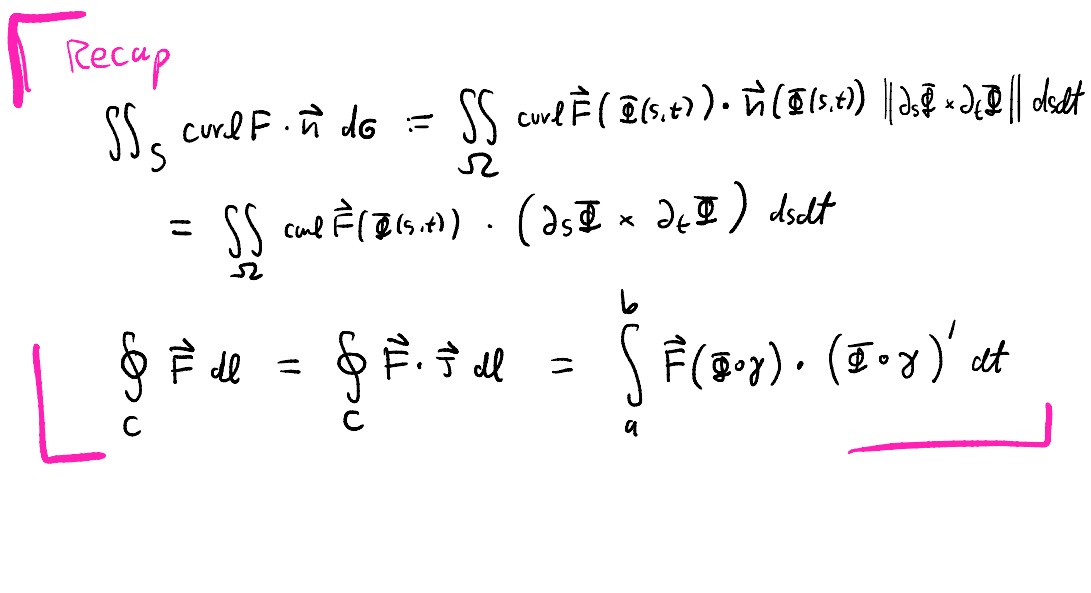 Recap
∬_S curl F · n⃗ dσ := ∬_Ω curl F⃗(Φ(s,t)) · n⃗(Φ(s,t)) ‖∂_sΦ × ∂_tΦ‖ dsdt
= ∬_Ω curl F⃗(Φ(s,t)) · (∂_sΦ × ∂_tΦ) dsdt
∮_C F⃗ dl = ∮_C F⃗ · τ⃗ dl = ∫_a^b F⃗(Φ∘γ) · (Φ∘γ)' dt